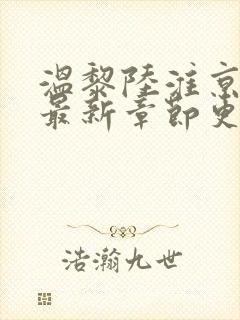 温黎陆淮京
最新章节更
浩瀚九世